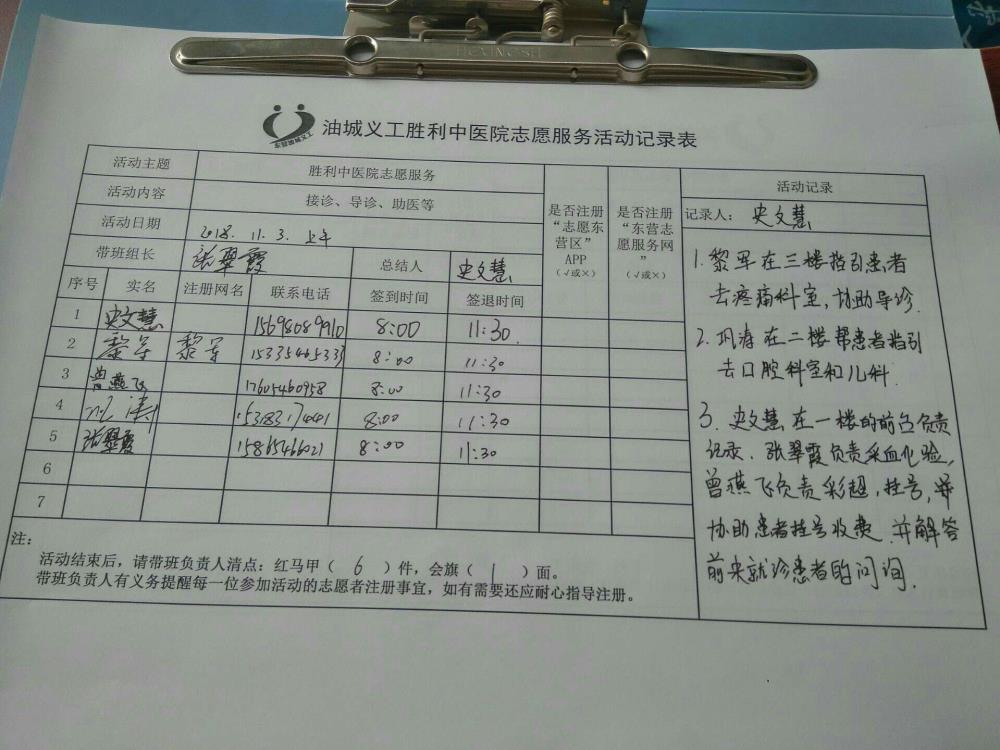 油城义工胜利中医院志愿服务活动记录表
东营油城义工
活动主题 胜利中医院志愿服务
活动内容 接诊、导诊、助医等
活动日期 2018. 11. 3. 上午
带班组长 张翠霞 总结人 史文慧
是否注册“志愿东营区”APP（√或×）
是否注册“东营志愿服务网”（√或×）
序号 实名 注册网名 联系电话 签到时间 签退时间
1 史文慧 15698089910 8:00 11:30
2 黎军 黎军 15335465333 8:00 11:30
3 曾燕飞 17605460958 8:00 11:30
4 巩涛 8:00 11:30
5 张翠霞 15865466021 8:00 11:30
6
7
注：
活动结束后，请带班负责人清点：红马甲（ 6 ）件，会旗（ 1 ）面。
带班负责人有义务提醒每一位参加活动的志愿者注册事宜，如有需要还应耐心指导注册。
活动记录
记录人： 史文慧
1. 黎军在三楼指引患者
去疼痛科室，协助导诊.
2. 巩涛在二楼帮患者指引
去口腔科室和儿科.
3. 史文慧在一楼的前台负责
记录. 张翠霞负责采血化验，
曾燕飞负责彩超，挂号，并
协助患者挂号收费. 并解答
前来就诊患者的问询.